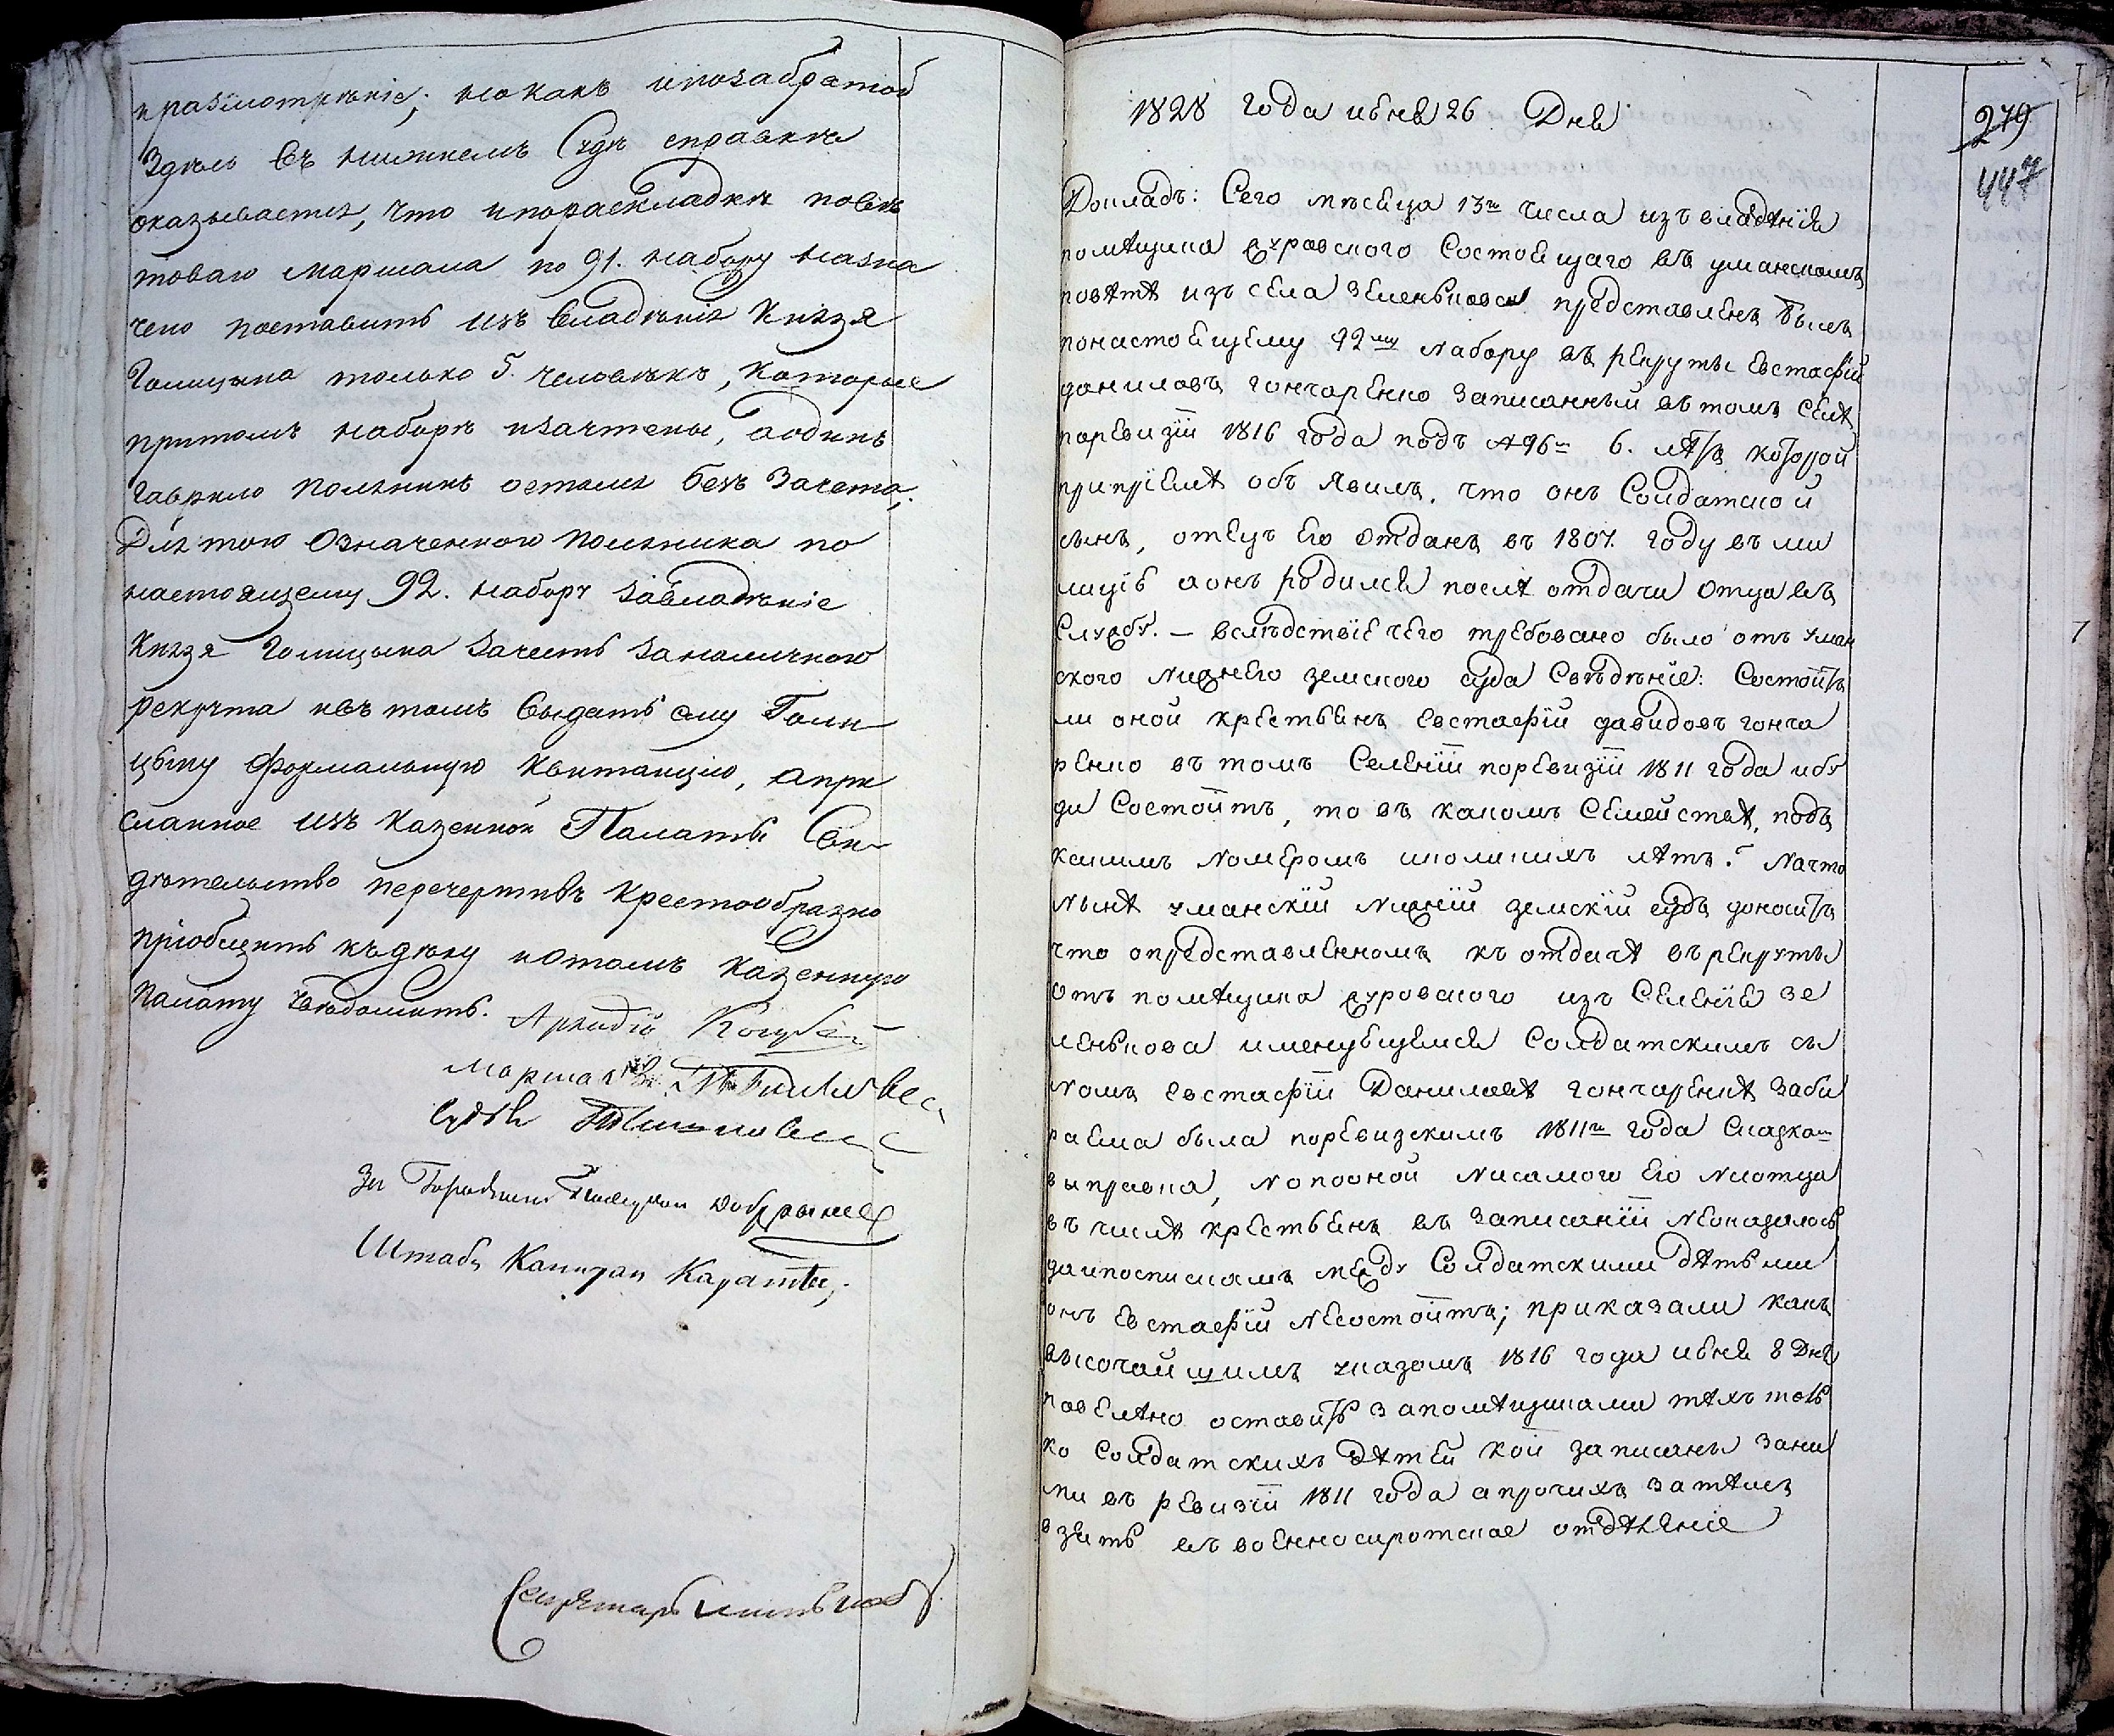 празсмотрѣніе; но какъ ипозабратой
Здѣсь въ нижнемъ Судѣ справкѣ
оказывается, что ипораскладкѣ повѣ
товаго маршала по 91. набору назна
чено поставить изъ владѣнія Князя
Голицына только 5. человѣкъ, которые
притомъ наборѣ изачтены, аодинъ
Гаврило Поляникъ остался безъ Зачета;
Для того Означенного Поляника по
настоящему 92. наборѣ завладѣніе
Князя Голицына Зачесть за наличного
рекрута ивъ томъ выдать ему Голи
цыну формальную квитанцію, апри
сланное изъ Казенной Палаты Сви
дѣтельство перечертивъ крестообразно
пріобщить къдѣлу иотомъ Казенную
Палату увѣдомить. Аркадій Кочубей
Маршалъ
Судья
За Городничего Добрынец
Штабъ Капитан Каратѣ;
Секретарь
1828 года июня 26 Дня
279
447
Докладъ: Сего мѣсяца 13го числа изъ владѣнія
помѣщика журовского Состоящаго въ уманскомъ
повѣтѣ изъ села зеленькова представленъ былъ
понастоящему 92му набору въ рекруты Евстафій
даниловъ гончаренко записанный въ томъ селѣ
поревизіи 1816 года подъ №96м 6. лѣтъ которой
припріемѣ объявилъ, что онъ Солдатской
сынъ, отецъ его отданъ въ 1807. году въ ми
лицію аонъ родился послѣ отдачи отца въ
Службу. — вслѣдствіе чего требовано было отъ уман
ского нижнего земского суда Свѣдѣніе: Состоитъ
ли оной крестьянъ Евстафій давидовъ гонча
ренко въ томъ Селеніи поревизіи 1811 года ибу
ди Состоитъ, то въ какомъ Семействѣ, подъ
какимъ номеромъ иколикихъ лѣтъ? начто
нынѣ уманскій нижній земскій судъ доноситъ
что опредставленномъ къ отдачѣ въ рекруты
отъ помѣщика журовского изъ Селенія зе
ленькова именующемся Солдатскимъ сы
номъ Евстафіи Даниловѣ гончаренкѣ заби
раема была поревизскимъ 1811го года Сказкам
выправка, нопооной нисамого его ниотца
въ числѣ крестьянъ въ записаніи неоказалось
даипоспискамъ между Солдатскими дѣтьми
онъ Евстафій несостоитъ; приказали какъ
высочайшимъ указомъ 1816 года июня 8 Дня
повелѣно оставить запомѣщиками тѣхъ толь
ко Солдатскихъ дѣтей кои записаны зани
ми въ ревизіи 1811 года апрочихъ затѣмъ
взять въ военносиротское отдѣленіе